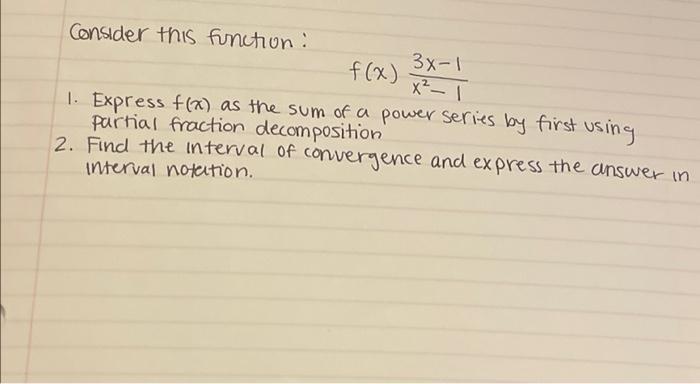 Consider this function:
f(x) 3x-1
x²-1
1. Express f(x) as the sum of a power series by first using
partial fraction decomposition
2. Find the interval of convergence and express the answer in
interval notation.